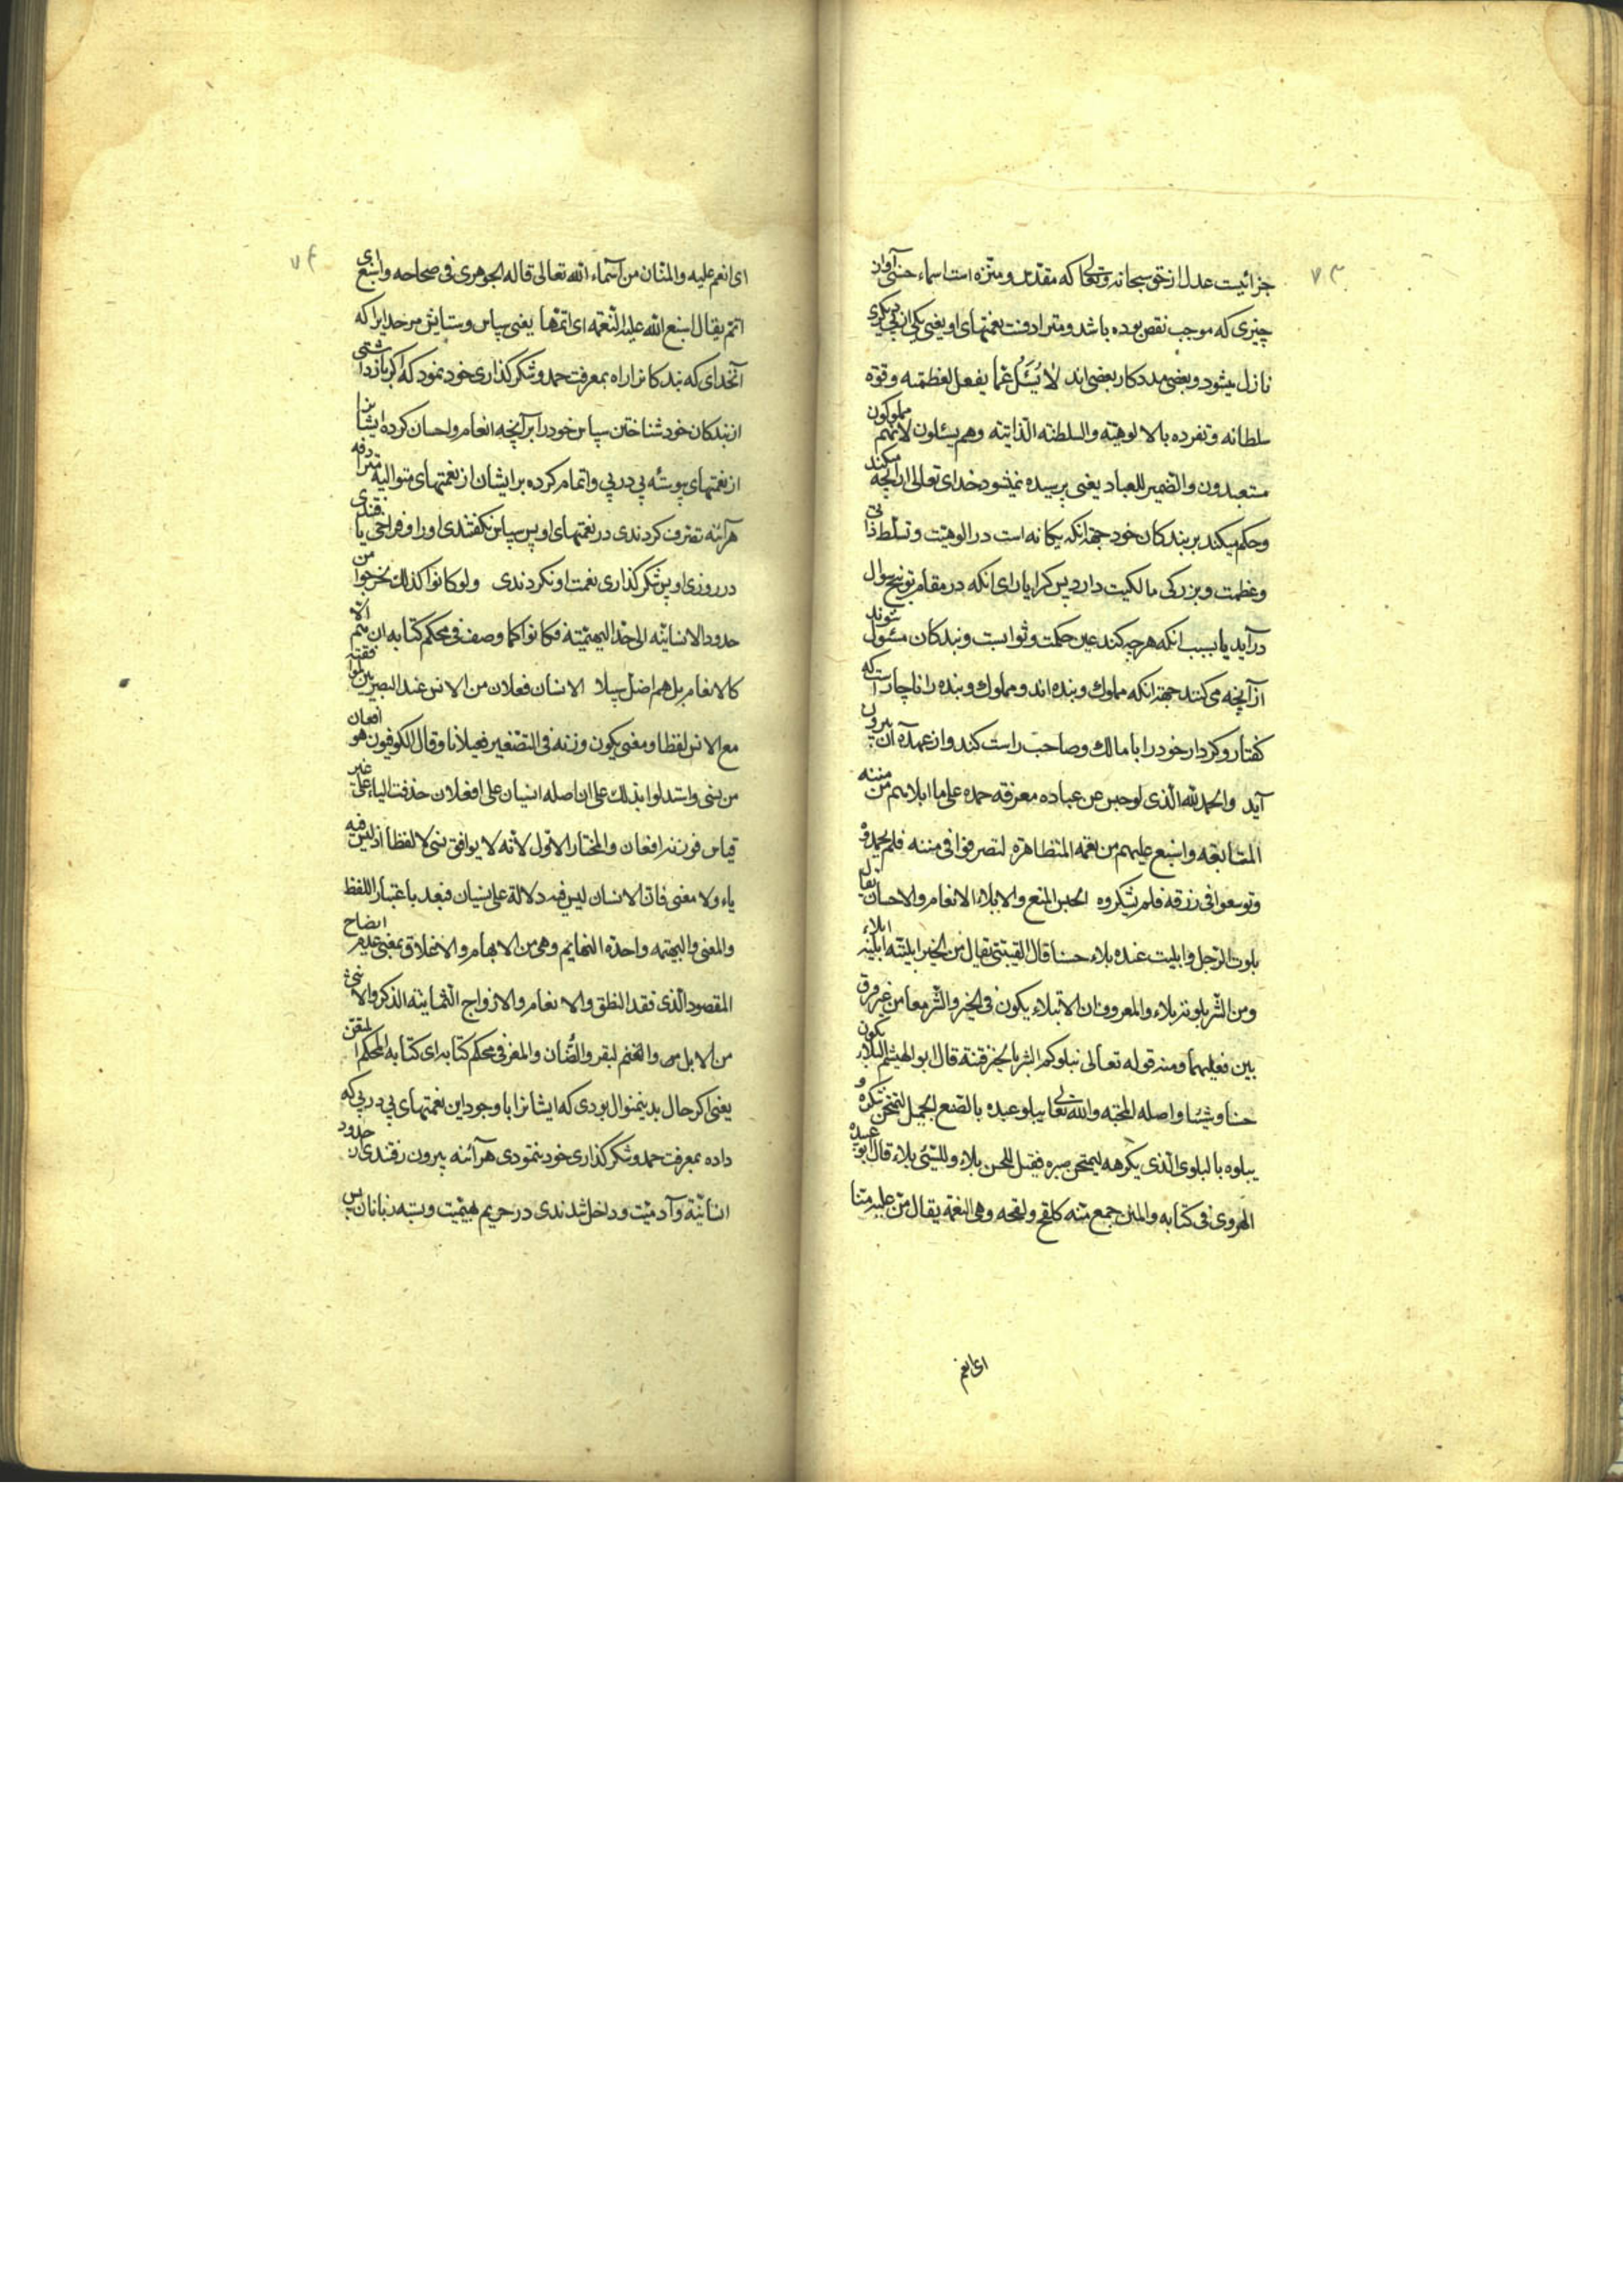 ۷۳
جزائیست عدل از حق سبحانه و تعالی که مقدس و منزه است اسماء حسنی او از
چیزی که موجب نقص بوده باشد و مترادفست نعمتهای او یعنی یکی از پی دیگری
نازل میشود و بعضی مددکار بعضی اند لا یُسَئلُ عما یفعل لعظمته و قوة
سلطانه و تفرده بالالوهیته والسلطنه الذاتیه وهم یسئلون لانهم مملوکون
مستعبدون والضمیر للعباد یعنی پرسیده نمیشود خدای تعالی از آنچه میکند
وحکم میکند بر بندکان خود جهة انکه یکانه است در الوهیت و تسلط ذاتی
وعظمت و بزرکی مالکیت دارد پس کرا یارای انکه در مقام توضیح سوال
درآید یا بسبب انکه هر چه کند عین حکمت و ثوابست و بندکان مسئول شوند
از آنچه می کنند جهة انکه مملوک و بنده اند و مملوک و بنده را ناچار است که
کفتار و کردار خود را با مالک و صاحب راست کند و از عهده آن بیرون
آید والحمد لله الذی لو حبس عن عباده معرفة حمده علی ما ابلاهم من مننه
المتتابعه واسبغ علیهم من نعمه المتظاهره لتصرفوا فی مننه فلم یحمدوه
وتوسعوا فی رزقه فلم یشکروه الحبس المنع والابلاء الانعام والاحسان یقال
بلوت الرجل وابلیت عنده بلاء حسنا قال القیتبتی یقال من الخیر ابلیته ابلیه ابلاء
ومن الشر بلوته بلاء والمعروف ان الابتلاء یکون فی الخیر والشر معا من غیر فرق
بین فعلیهما ومنه قوله تعالی نبلوکم بالشر والخیر فتنة قال ابو الهیثم البلاء یکون
حسنا وسیئا واصله المحنه والله تعالی یبلو عبده بالصنع الجمیل لیمتحن شکره و
یبلوه بالبلوی الذی یکرهه لیمتحن صبره فقیل للحسن بلاء وللسیئ بلاء قال ابو عبیده
الهروی فی کتابه والمنن جمع منه کلقح ولقحه وهی النعمة یقال من علیه منا
ای انعم
۷۴
ای انعم علیه والمنان من اسماء الله تعالی قاله الجوهری فی صحاحه واسبغ ای
اتم یقال اسبغ الله علیه النعمة ای اتمها یعنی سپاس و ستایش مر خدایرا که
آنخدای که بندکانرا راه بمعرفت حمد و شکر کذاری خود نمود که اکر بازداشتی
از بندکان خود شناختن سپاس خود را بر آنچه انعام و احسان کرده ایشانرا
از نعمتهای پوسته پی در پی و اتمام کرده بر ایشان از نعمتهای متوالیه مترادفه
هرآئنه تصرف کردندی در نعمتهای او پس سپاس نکفتندی او را و فراخی یافتندی
در روزی او پس شکر کذاری نعمت او نکردندی ولو کانوا کذلک لخرجوا من
حدود الانسانیه الی حد البهیمیته فکانوا کما وصف فی محکم کتابه ان هم الا
کالانعام بل هم اضل سبیلا الانسان فعلان من الانس عند البصریین لموافقته
مع الانس لفظا ومعنی یکون وزنه فی التصغیر فعیلانا وقال الکوفیون هو افعان
من نسی واستدلوا بذلک علی ان اصله انسیان علی افعلان حذفت الیاء علی غیر
قیاس فوزنه افعان والمختار الاول لانه لا یوافق نسی لا لفظا اذ لیس فیه
یاء ولا معنی فان الانسان لیس فیه دلالة علی نسیان فبعد باعتبار اللفظ
والمعنی والبهیمه واحدة البهایم وهی من الابهام والاغلاق بمعنی عدم ایضاح
المقصود الذی فقد النطق والانعام والازواج الثمانیة الذکر والانثی
من الابل والغنم لبقر والضان والمعز فی محکم کتابه ای کتابه المحکم المتقن
یعنی اکر حال بدینمنوال بودی که ایشانرا با وجود این نعمتهای پی در پی که
داده بمعرفت حمد و شکر کذاری خود ننمودی هرآئنه بیرون رفتندی از حدود
انسانیة و آدمیت و داخل شدندی در حریم بهیمیت و بسته زبانان پس